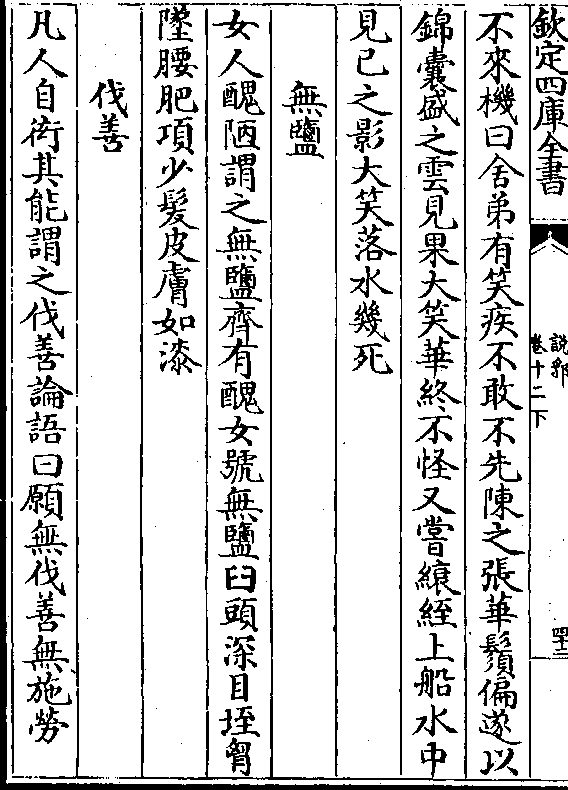 欽定四庫全書
說郛
卷十二下
四十三
不來機曰舍弟有笑疾不敢不先陳之張華鬚偏遂以
錦囊盛之雲見果大笑華終不怪又嘗縗絰上船水中
見已之影大笑落水幾死
無鹽
女人醜陋謂之無鹽齊有醜女號無鹽臼頭深目垤胷
墬腰肥項少髮皮膚如漆
伐善
凡人自衒其能謂之伐善論語曰願無伐善無施勞